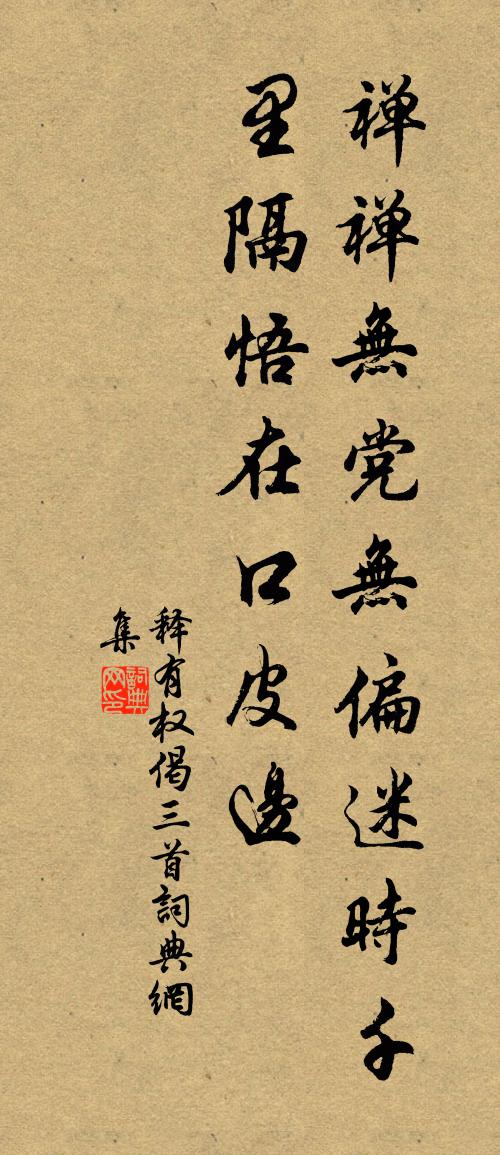 禅禅無党無偏迷時千
里隔悟在口皮邊
释有权偈三首詞典網
集
詞典
网印